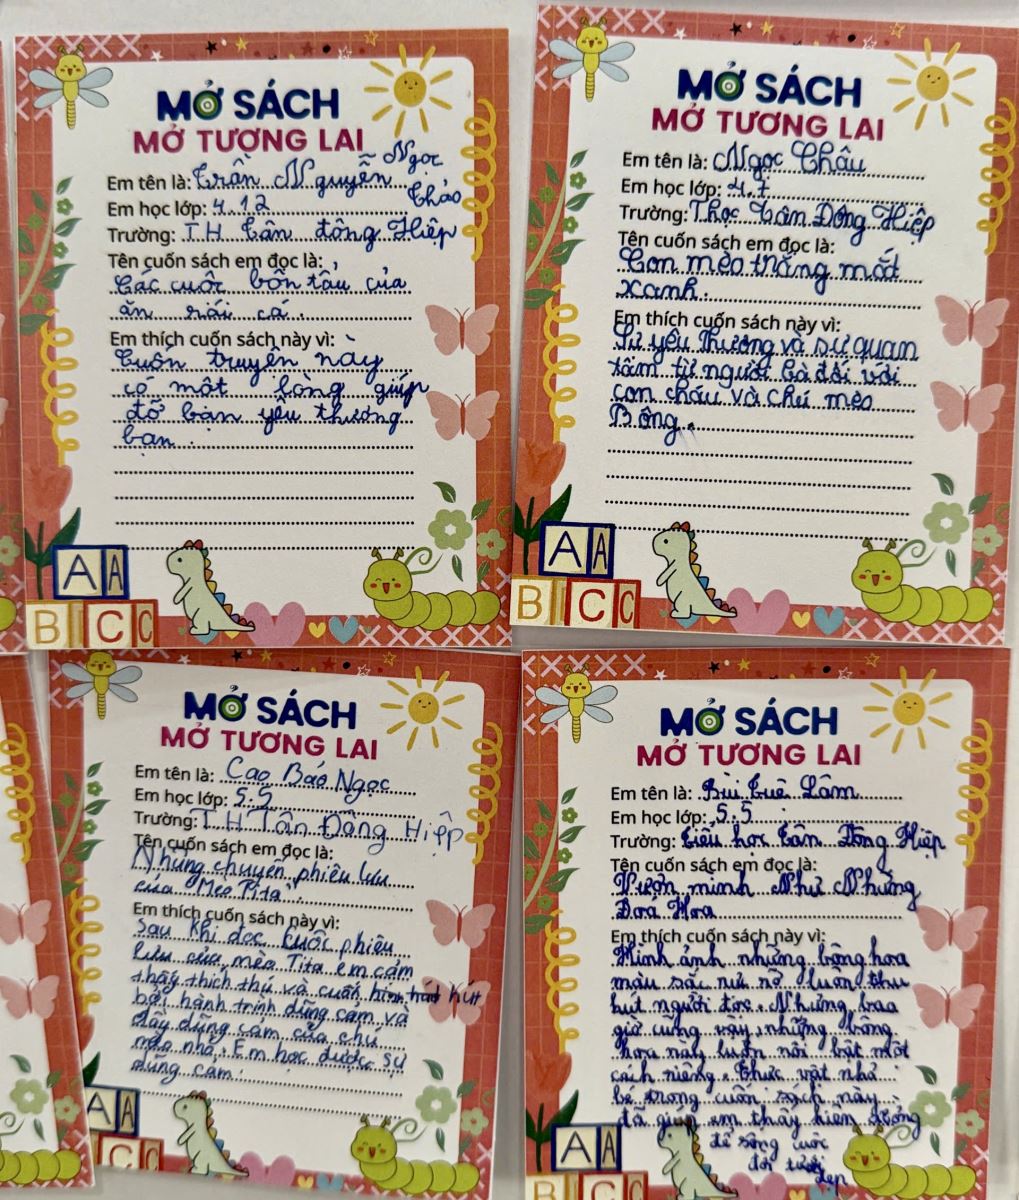 MỞ SÁCH
MỞ TƯƠNG LAI
Em tên là: Trần Nguyễn Ngọc Thảo
Em học lớp: 4.12
Trường: TH Tân đông Hiệp
Tên cuốn sách em đọc là:
Các cuộc bồn tẩu của
ăn rái cá.
Em thích cuốn sách này vì:
Cuộn truyện này
có một lòng giúp
đỡ bạn yêu thương
bạn.
A A
B C C
MỞ SÁCH
MỞ TƯƠNG LAI
Em tên là: Ngọc Châu
Em học lớp: 4.7
Trường: Thọc Tân Đông Hiệp
Tên cuốn sách em đọc là:
Con mèo trắng mắt
xanh.
Em thích cuốn sách này vì:
Sự yêu thương và sự quan
tâm từ người bà đối với
con cháu và chú mèo
Bông.
A A
B C C
MỞ SÁCH
MỞ TƯƠNG LAI
Em tên là: Cao Bảo Ngọc
Em học lớp: 5.5
Trường: TH Tân Đông Hiệp
Tên cuốn sách em đọc là:
Những chuyến phiêu lưu
của Mèo Tita.
Em thích cuốn sách này vì:
Sau khi đọc cuốc phiêu
lưu của mèo Tita em cảm
thấy thích thú và cuốn hút
bởi hành trình dũng cảm và
đầy dũng cảm của chú
mèo nhỏ. Em học được sự
dũng cảm.
A A
C C
MỞ SÁCH
MỞ TƯƠNG LAI
Em tên là: Bùi Tuệ Lâm
Em học lớp: 5.5
Trường: Tiểu học Tân Đông Hiệp
Tên cuốn sách em đọc là:
Vườn mình Như Những
Đoá Hoa
Em thích cuốn sách này vì:
Hình ảnh những bông hoa
màu sắc nở luôn thu
hút người đọc. Nhưng bao
giờ cũng vậy, những bông
hoa này luôn nổi bật một
cách riêng. Thực vật nhỏ
bé trong cuốn sách này
đã giúp em thấy kiên cường
để sống cuộc
đời tươi
đẹp
A A
B C C